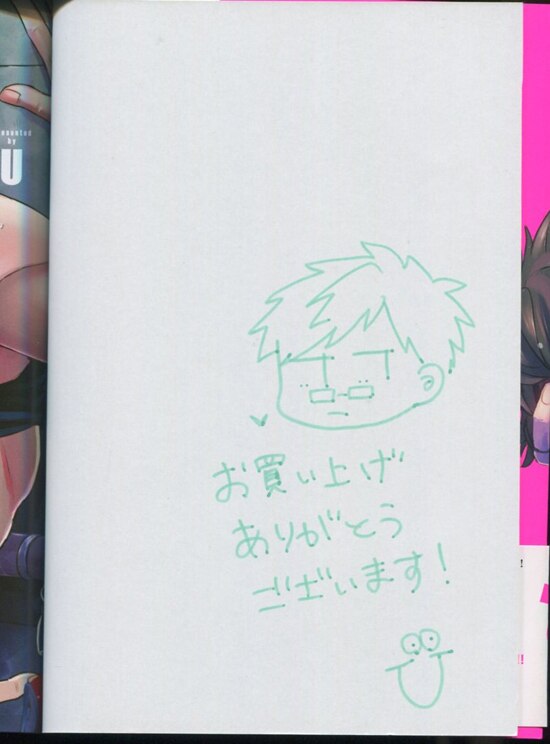 esented
by
U
お買い上げ
ありがとう
ございます!
!
!!